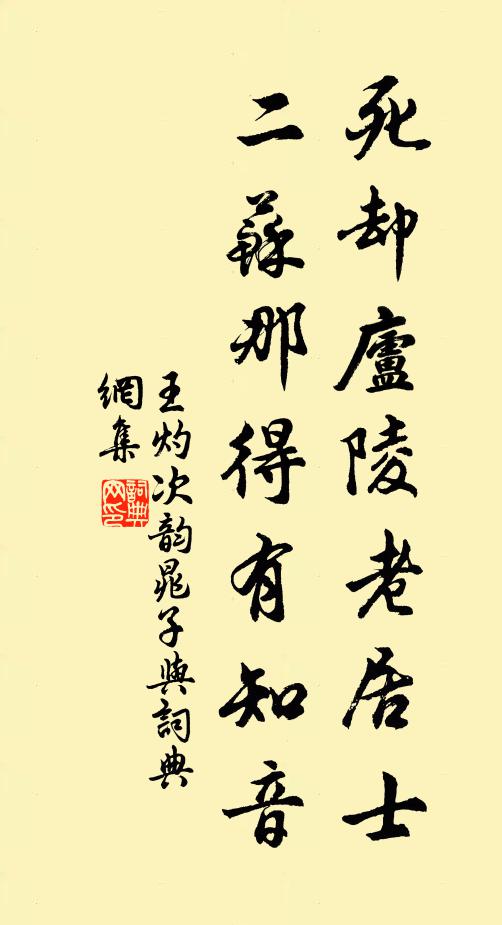 死却廬陵老居士
二蘇那得有知音
王灼次韵晁子與詞典
網集
詞典網印